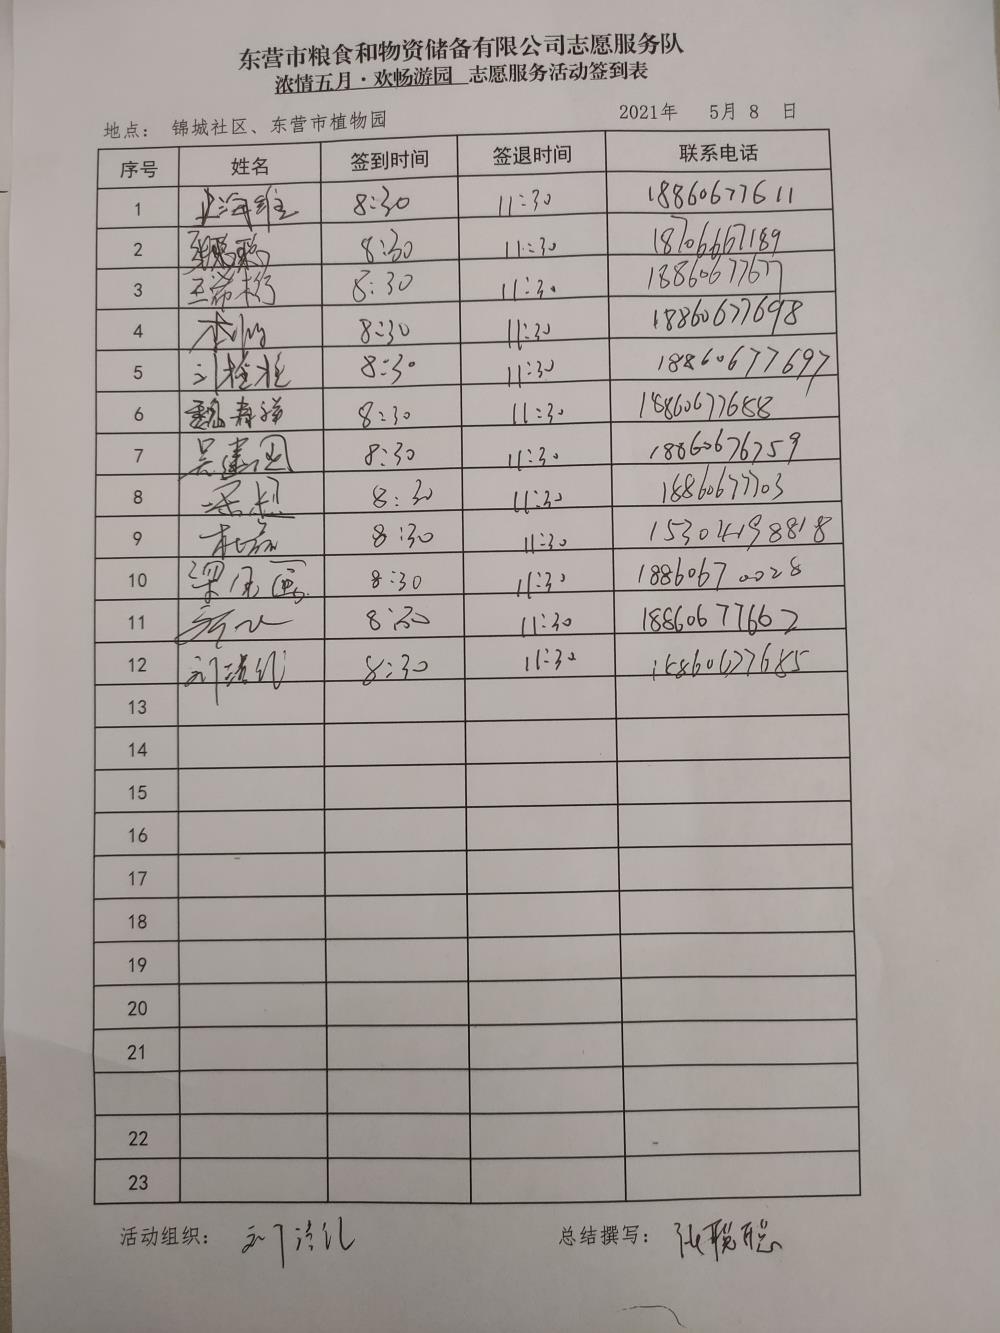 东营市粮食和物资储备有限公司志愿服务队
浓情五月·欢畅游园 志愿服务活动签到表
地点： 锦城社区、东营市植物园 2021年 5月 8 日
序号 姓名 签到时间 签退时间 联系电话
1 8:30 11:30 18860677611
2 8:30 11:30 18706667189
3 8:30 11:30 18860677677
4 8:30 11:30 18860677698
5 刘桂桂 8:30 11:30 18860677697
6 魏寿祥 8:30 11:30 18860677688
7 吴建国 8:30 11:30 18860676759
8 8:30 11:30 18860677703
9 8:30 11:30 15304198818
10 8:30 11:30 18860670028
11 8:30 11:30 18860677662
12 8:30 11:30 18860677685
13
14
15
16
17
18
19
20
21
22
23
活动组织： 总结撰写： 张聪聪